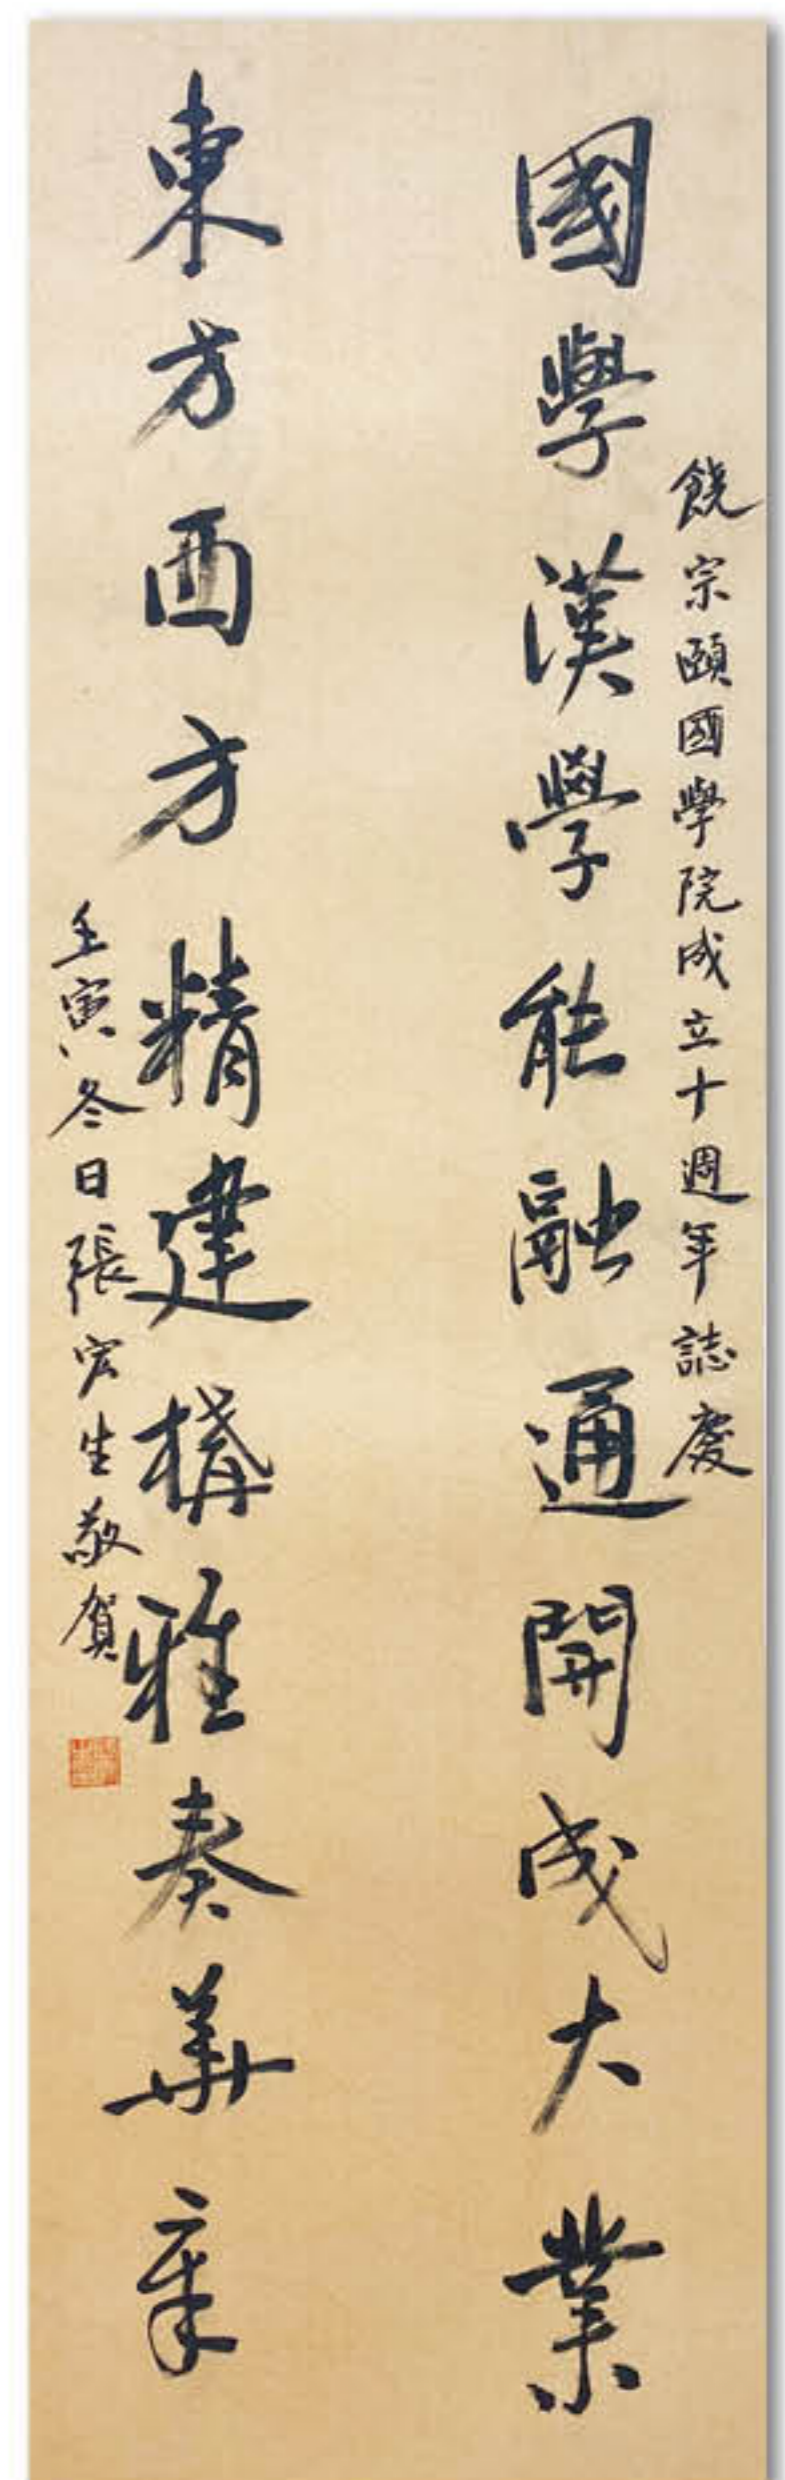 饒宗頤國學院成立十週年誌慶
國學漢學能融通開成大業
東方西方精建構雅奏華章
壬寅冬日張宏生敬賀